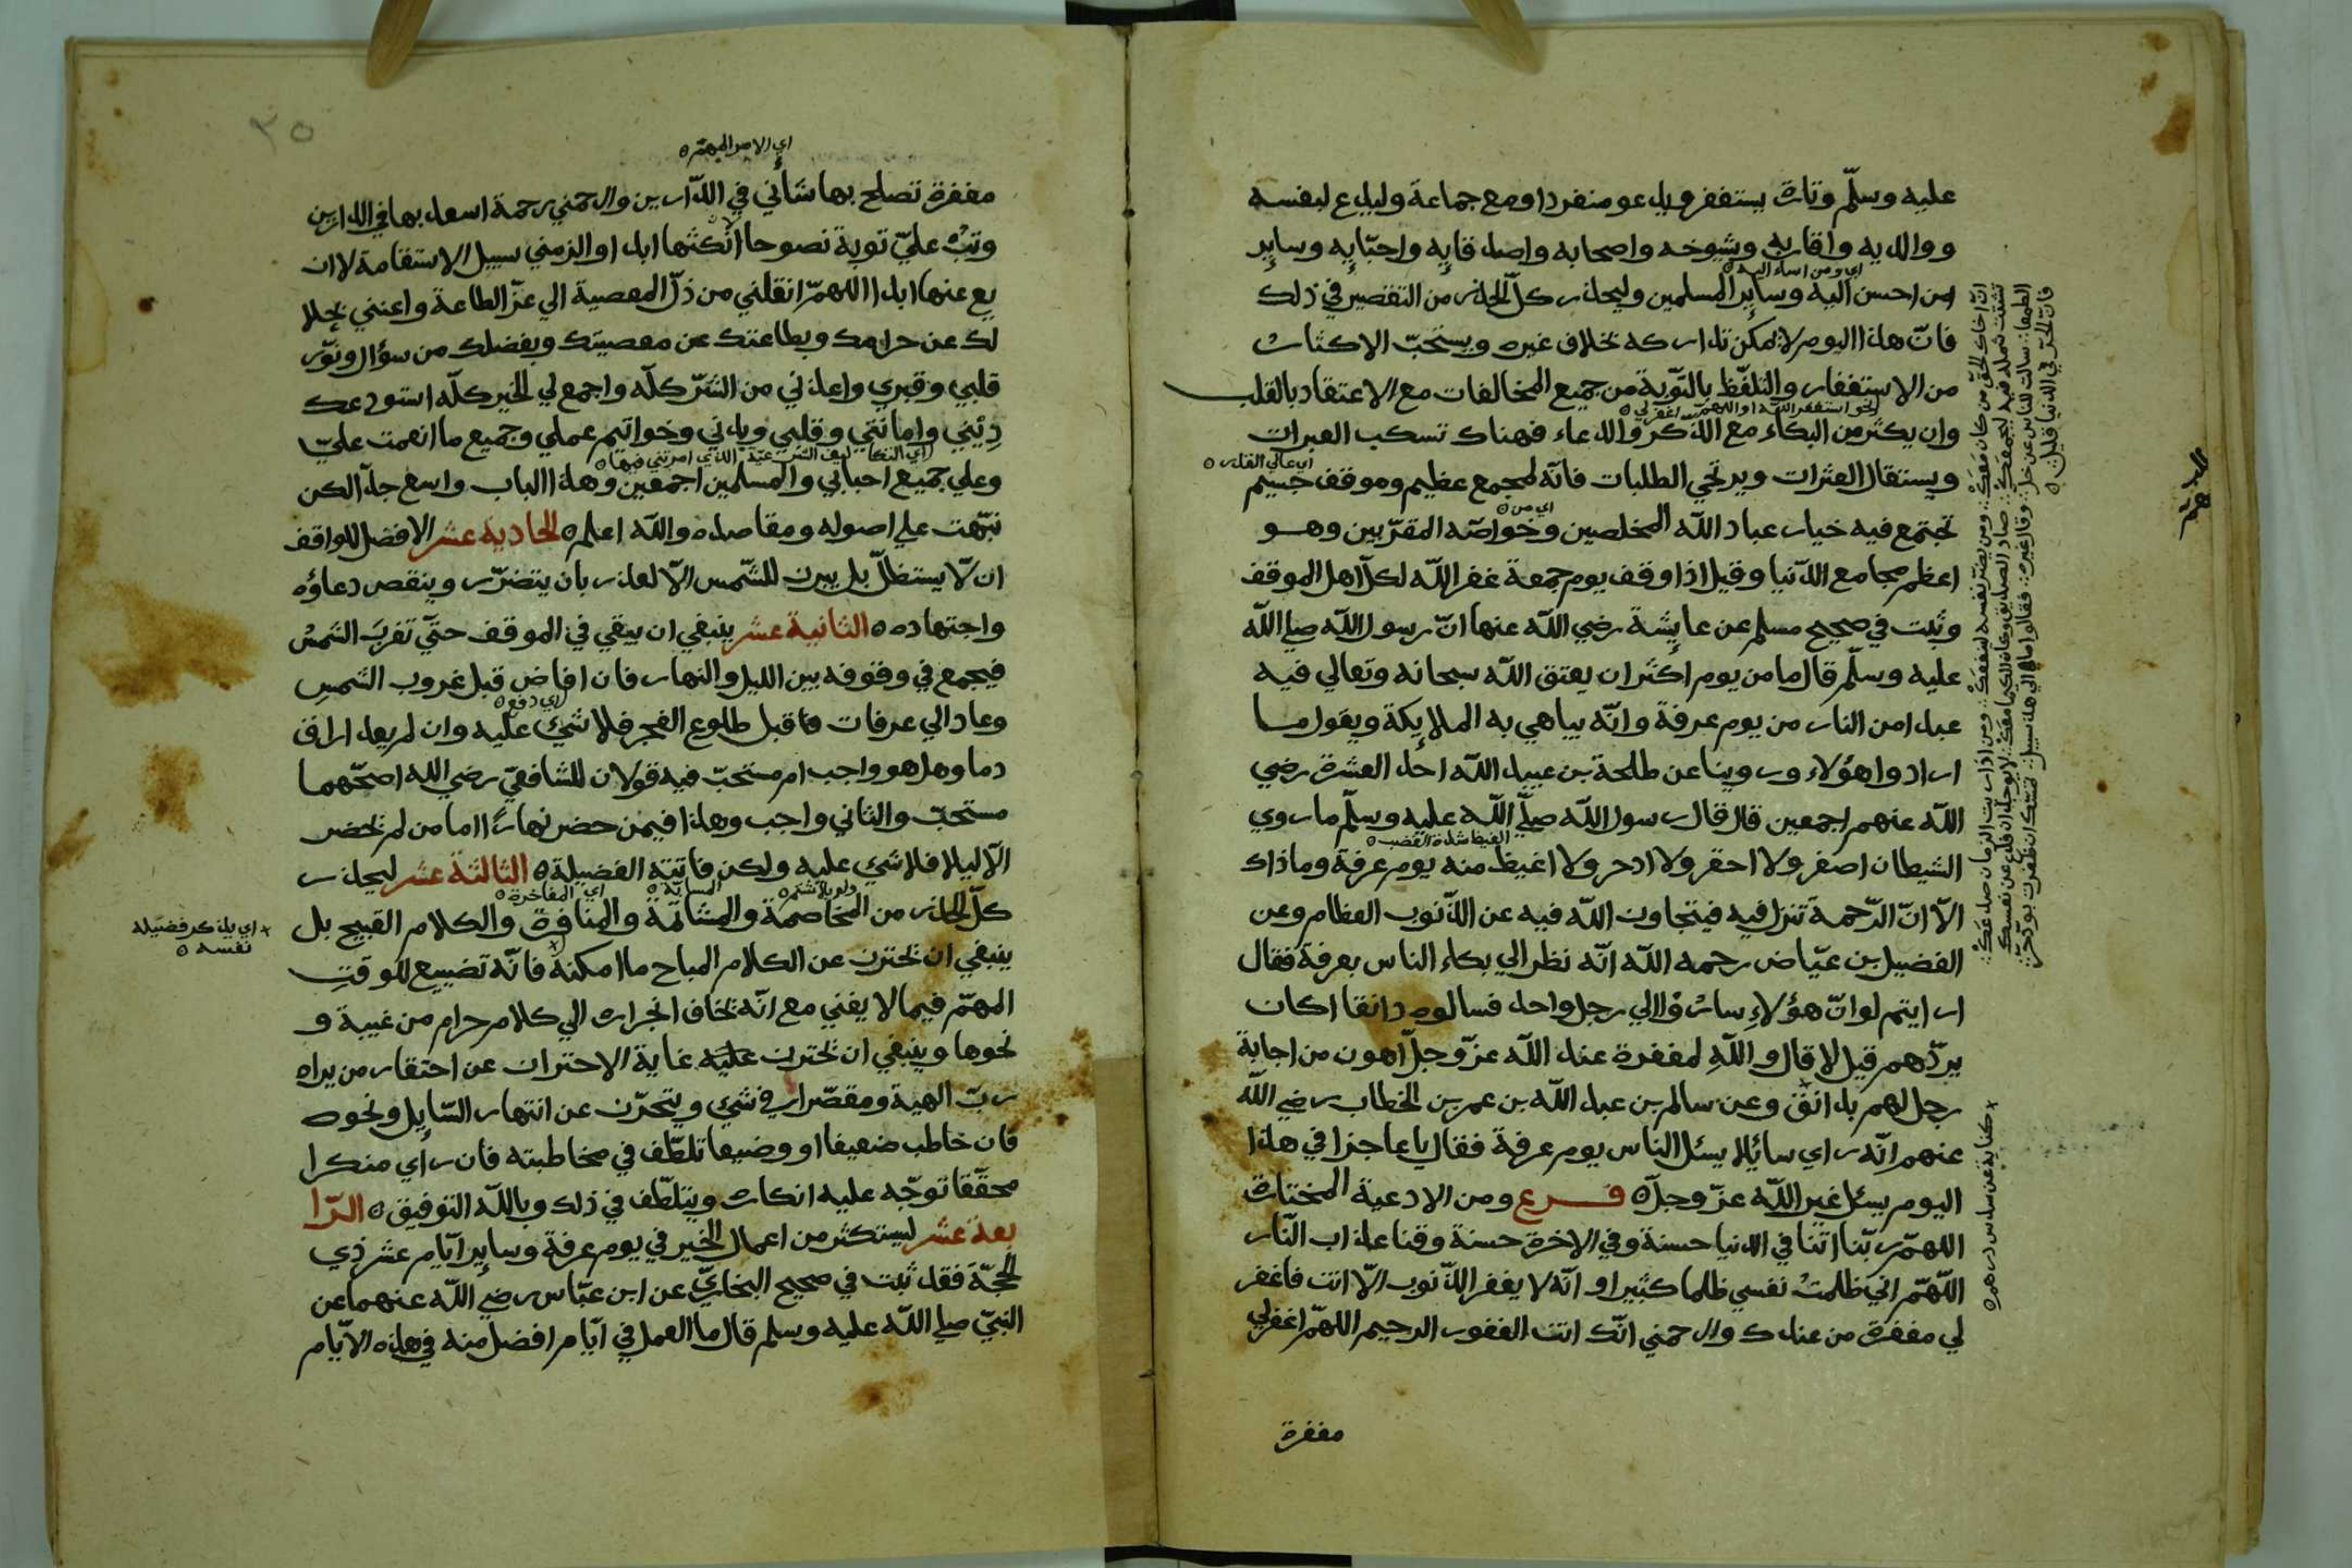 عليه وسلّم وتارة يستغفر ويدعو منفردا ومع جماعة وليدع لنفسه
ووالديه واقاربه وشيوخه واصحابه واصدقايه واحبّايه وساير
من احسن اليه وساير المسلمين وليحذر كلّ الحذر من التقصير في ذلك
اي ومن اساء اليه
فانّ هذا اليوم لا يمكن تداركه بخلاف غيره ويستحبّ الاكثار
من الاستغفار والتلفّظ بالتّوبة من جميع المخالفات مع الاعتقاد بالقلب
نحو استغفر الله او اللهمّ اغفر لي
وان يكثر من البكاء مع الذّكر والدعاء فهناك تسكب العبرات
ويستقال العثرات ويرتجي الطلبات فانّه لمجمع عظيم وموقف جسيم
اي عالي القدر
تجتمع فيه خيار عباد الله المخلصين وخواصّه المقرّبين وهو
اي من
اعظم مجامع الدّنيا وقيل اذا وقف يوم جمعة غفر اللّه لكلّ اهل الموقف
وثبت في صحيح مسلم عن عايشة رضي اللّه عنها انّ رسول اللّه صلي اللّه
عليه وسلّم قال ما من يوم اكثر ان يعتق اللّه سبحانه وتعالي فيه
عبدا من النار من يوم عرفة وانّه يباهي به الملايكة ويقول ما
اراد وا هؤلاء وروينا عن طلحة بن عبيد اللّه احد العشرة رضي
اللّه عنهم اجمعين قال قال رسول اللّه صلّي اللّه عليه وسلّم ما روي
الشيطان اصغر ولا احقر ولا ادحر ولا اغيظ منه يوم عرفة وما ذاك
الغيظ شدة الغضب
الّا انّ الرّحمة تنزل فيه فيتجاوز اللّه فيه عن الذّنوب العظام وعن
الفضيل بن عيّاض رحمه اللّه انّه نظر الي بكاء الناس بعرفة فقال
ارايتم لو انّ هؤلاءِ سارُوْا الي رجل واحد فسالوه دانقا اكان
يردّهم قيل لا قال واللّهِ لمغفرة عند اللّه عزّ وجلّ اهون من اجابة
رجل لهم بدانق وعن سالم بن عبد اللّه بن عمر بن الخطاب رضي اللّه
عنهم انّه راي سائلا يسئل الناس يوم عرفة فقال يا عاجز افي هذا
اليوم يسئل غير اللّه عزّ وجلّ فرع ومن الادعية المختارة
اللهمّ ربّنا اتنا في الدنيا حسنة وفي الاخرة حسنة وقنا عذاب النّار
اللّهمّ اني ظلمتُ نفسي ظلما كثيرا و انّه لا يغفر الذّنوب الّا انت فاغفر
لي مغفرة من عندك وارحمني انّك انت الغفور الرحيم اللهمّ اغفرلي
مغفرة
انّ اخاك الحقّ من كان معكْ ومن يضرّ نفسه لينفعكْ ومن اذا ريب الزمان صدعكْ
كناية عن سدس درهم
٣٥
اي الامر المهمّ
مغفرة تصلح بها شأني في الدّارين وارحمني رحمة اسعد بها في الدارين
وتبْ عليّ توبة نصوحا لا انكثها ابدا والزمني سبيل الاستقامة لا ان
يغ عنها ابدا اللهمّ انقلني من ذلّ المعصية الي عزّ الطاعة واغنني بحلا
لك عن حرامك وبطاعتك عن معصيتك وبفضلك من سؤال ونوّر
قلبي وقبري واعذني من الشرّ كلّه واجمع لي الخير كلّه استودعك
دِيْني وامانتي وقلبي وبدني وخواتيم عملي وجميع ما انعمت عليّ
وعلي جميع احبابي والمسلمين اجمعين وهذا الباب واسع جدّا لكن
نبّهت علي اصوله ومقاصده واللّه اعلم الحادية عشر الافضل للواقف
ان لّا يستظلّ بل يبرز للشّمس الّا لعذر بان يتضرّر وينقص دعاؤه
واجتهاده الثانية عشر ينبغي ان يبقي في الموقف حتّي تغربَ الشمسُ
فيجمع في وقوفه بين الليل والنهار فان افاض قبل غروب الشمسِ
اي دفع
وعاد الي عرفات قبل طلوع الفجر فلا شيَْ عليه وان لم يعد اراق
دما وهل هو واجب ام مستحبّ فيه قولان للشافعيّ رضي الله اصحّهما
مستحبّ والثاني واجب وهذا فيمن حضر نهارًا اما من لم يحضر
الّا ليلا فلا شي عليه ولكن فاتته الفضيلة الثالثة عشر ليحذر
كلّ الحذر من المخاصمة والمشاتمة والمنافرة والكلام القبيح بل
اي المفاخرة
اي يذكر فضيلة
نفسه
ينبغي ان يحترز عن الكلام المباح ما امكنه فانّه تضييع للوقتِ
المهمّ فيما لا يغني مع انّه يخاف انجراره الي كلام حرام من غيبة و
نحوها وينبغي ان يحترز عليه غاية الاحتراز عن احتقار من يراه
ربّ الهيئة ومقصّرا في شيَ ويتحرّز عن انتهار السّايل ونحوه
فان خاطب ضعيفا او وضيعا تلطّف في مخاطبته فان راي منكرا
محقّقا توجّه عليه انكاره ويتلطّف في ذلك وباللّه التوفيق الرّا
بعة عشر ليستكثر من اعمال الخير في يوم عرفة وساير ايّام عشر ذي
الحجّة فقد ثبت في صحيح البخاريّ عن ابن عبّاس رضي اللّه عنهما عن
النبيّ صلي اللّه عليه وسلم قال ما العمل في ايّام افضل منه في هذه الايّام